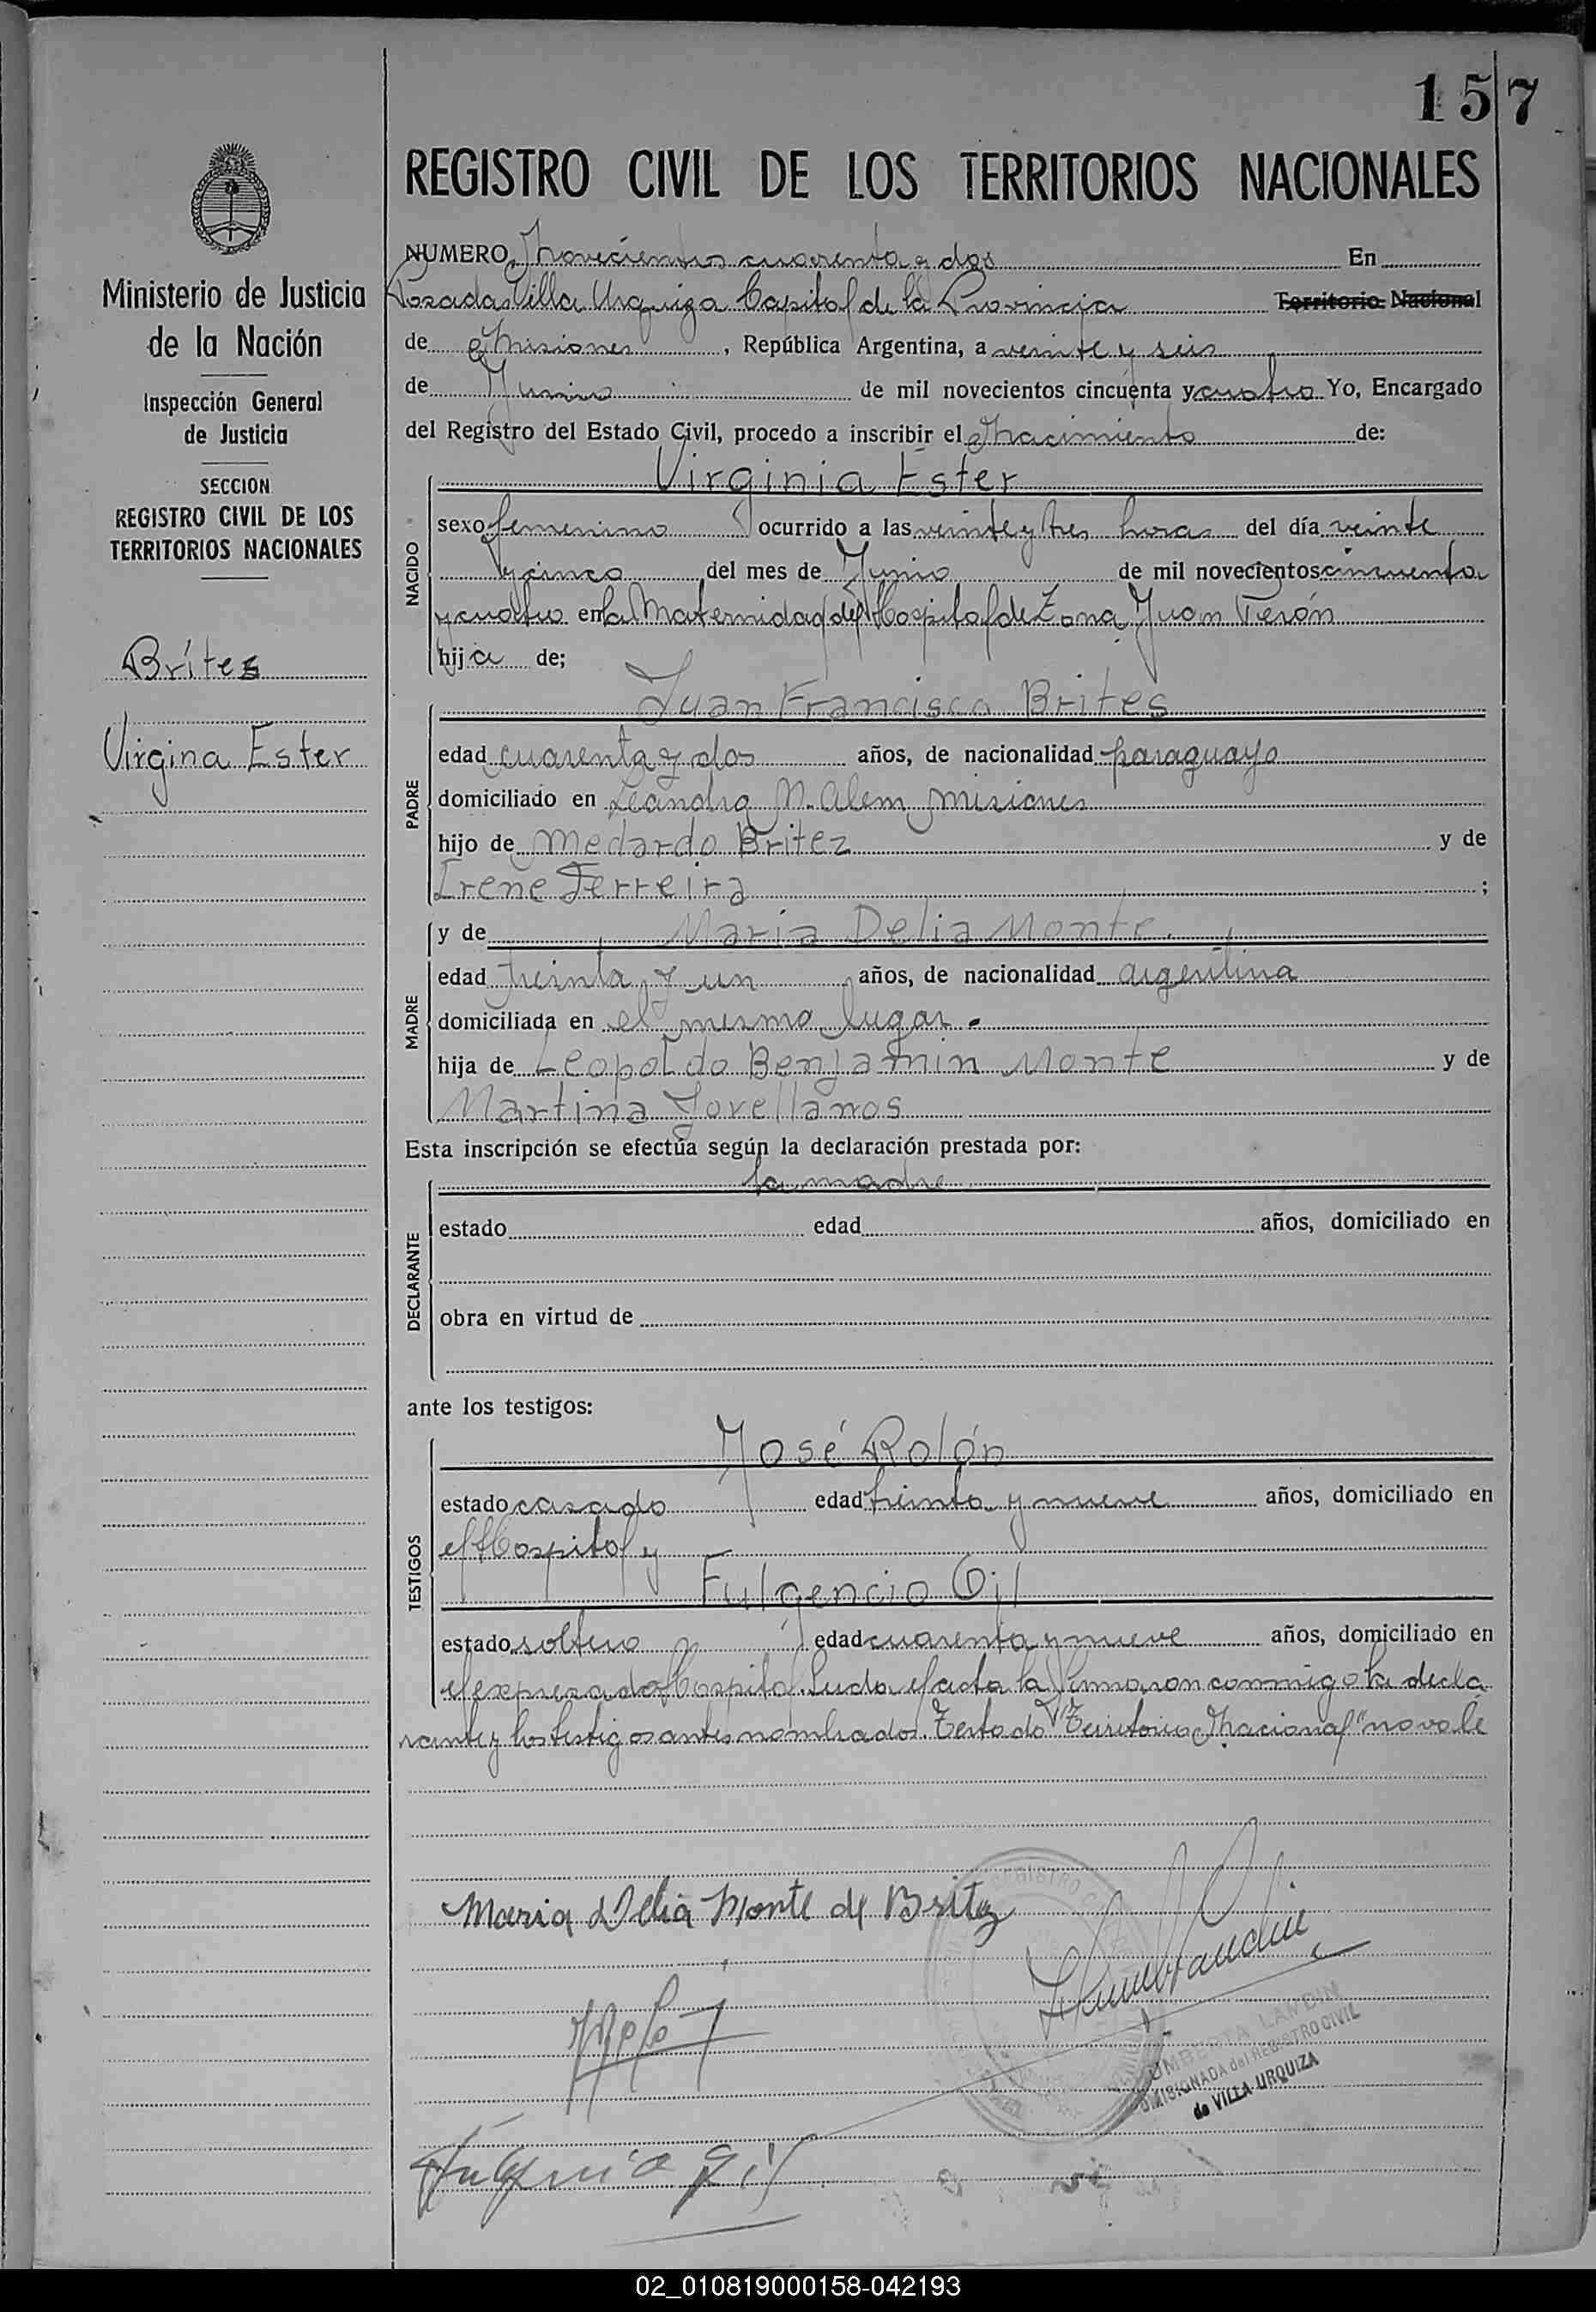 157
REGISTRO CIVIL DE LOS TERRITORIOS NACIONALES
Ministerio de Justicia
de la Nación
Inspección General
de Justicia
SECCION
REGISTRO CIVIL DE LOS
TERRITORIOS NACIONALES
Brítes
Virgina Ester
NUMERO Novecientos cuarenta y dos En
Posadas Villa Urquiza Capital de la Provincia Territorio Nacional
de Misiones, República Argentina, a veinte y seis
de Junio de mil novecientos cincuenta y cuatro Yo, Encargado
del Registro del Estado Civil, procedo a inscribir el Nacimiento de:
NACIDO
Virginia Ester
sexo femenino ocurrido a las veinte y tres horas del día veinte
y cinco del mes de Junio de mil novecientos cincuenta
y cuatro en la Maternidad del Hospital de Zona Juan Perón
hija de;
PADRE
Juan Francisco Brites
edad cuarenta y dos años, de nacionalidad paraguayo
domiciliado en Leandro N. Alem Misiones
hijo de Medardo Britez y de
Irene Ferreira ;
MADRE
y de Maria Delia Monte.
edad treinta y un años, de nacionalidad argentina
domiciliada en el mismo lugar.
hija de Leopoldo Benjamin Monte y de
Martina Jovellanos
Esta inscripción se efectúa según la declaración prestada por:
DECLARANTE
la madre
estado edad años, domiciliado en
obra en virtud de
ante los testigos:
TESTIGOS
José Rolón
estado casado edad treinta y nueve años, domiciliado en
el Hospital y
Fulgencio Gil
estado soltero edad cuarenta y nueve años, domiciliado en
el expresado Hospital. Leida el acta la firmaron conmigo la decla
rante y los testigos antes nombrados. Testado "Territorio Nacional" no vale
Maria Delia Monte de Britez
Fulgencio Gil
REGISTRO
LANDIN
COMISIONADA del REGISTRO CIVIL
de VILLA URQUIZA
02_010819000158-042193